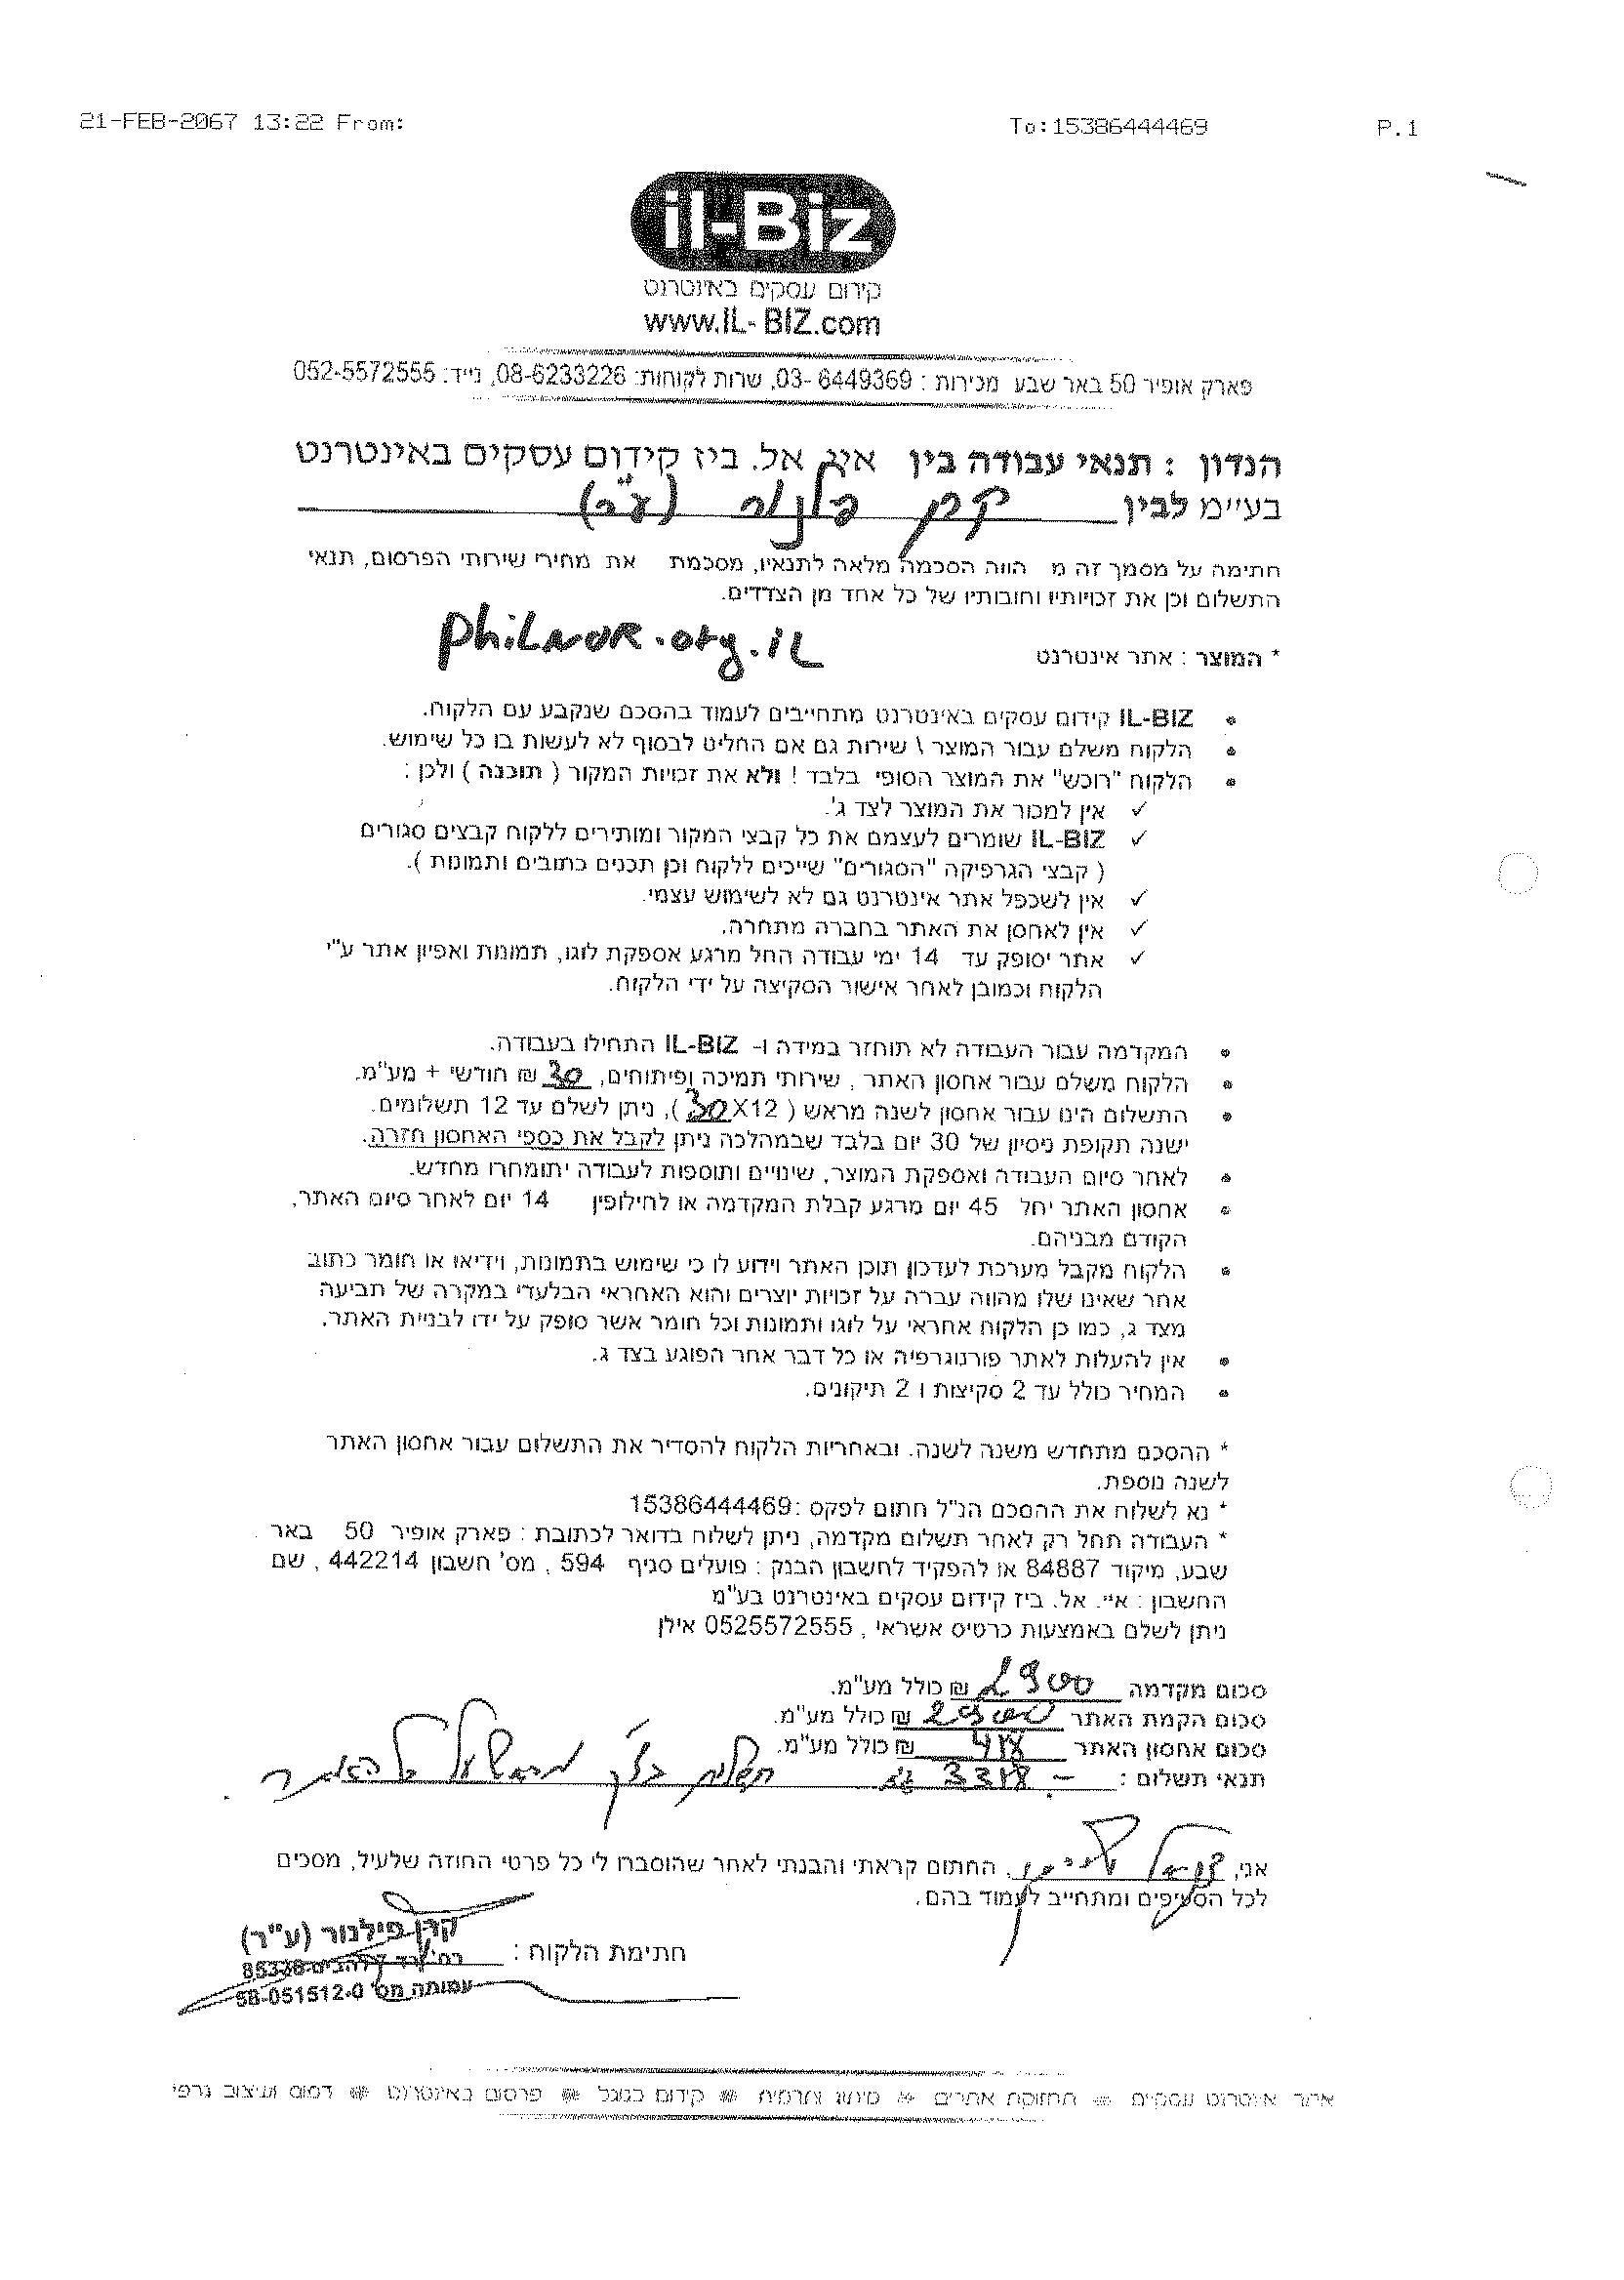 21-FEB-2067 13:22 From: To:15386444469 P.1
il-Biz
קידום עסקים באינטרנט
www.IL-BIZ.com
פארק אופיר 50 באר שבע מכירות : 03-6449369, שרות לקוחות: 08-6233226, נייד: 052-5572555
הנדון : תנאי עבודה בין איי אל. ביז קידום עסקים באינטרנט
בע״מ לבין קרן פילנור (ע"ר)
חתימה על מסמך זה מ הווה הסכמה מלאה לתנאיו, מסכמת את מחירי שירותי הפרסום, תנאי
התשלום וכן את זכויותיו וחובותיו של כל אחד מן הצדדים.
* המוצר : אתר אינטרנט philnor.org.il
• IL-BIZ קידום עסקים באינטרנט מתחייבים לעמוד בהסכם שנקבע עם הלקוח.
• הלקוח משלם עבור המוצר \ שירות גם אם החליט לבסוף לא לעשות בו כל שימוש.
• הלקוח "רוכש" את המוצר הסופי בלבד ! ולא את זכויות המקור ( תוכנה ) ולכן :
✓ אין למכור את המוצר לצד ג'.
✓ IL-BIZ שומרים לעצמם את כל קבצי המקור ומותירים ללקוח קבצים סגורים
( קבצי הגרפיקה "הסגורים" שייכים ללקוח וכן תכנים כתובים ותמונות ).
✓ אין לשכפל אתר אינטרנט גם לא לשימוש עצמי.
✓ אין לאחסן את האתר בחברה מתחרה.
✓ אתר יסופק עד 14 ימי עבודה החל מרגע אספקת לוגו, תמונות ואפיון אתר ע"י
הלקוח וכמובן לאחר אישור הסקיצה על ידי הלקוח.
• המקדמה עבור העבודה לא תוחזר במידה ו- IL-BIZ התחילו בעבודה.
• הלקוח משלם עבור אחסון האתר , שירותי תמיכה ופיתוחים, 30 ₪ חודשי + מע"מ.
• התשלום הינו עבור אחסון לשנה מראש ( 30X12 ), ניתן לשלם עד 12 תשלומים.
ישנה תקופת ניסיון של 30 יום בלבד שבמהלכה ניתן לקבל את כספי האחסון חזרה.
• לאחר סיום העבודה ואספקת המוצר, שינויים ותוספות לעבודה יתומחרו מחדש.
• אחסון האתר יחל 45 יום מרגע קבלת המקדמה או לחילופין 14 יום לאחר סיום האתר,
הקודם מבניהם.
• הלקוח מקבל מערכת לעדכון תוכן האתר וידוע לו כי שימוש בתמונות, וידיאו או חומר כתוב
אחר שאינו שלו מהווה עברה על זכויות יוצרים והוא האחראי הבלעדי במקרה של תביעה
מצד ג, כמו כן הלקוח אחראי על לוגו ותמונות וכל חומר אשר סופק על ידו לבניית האתר.
• אין להעלות לאתר פורנוגרפיה או כל דבר אחר הפוגע בצד ג.
• המחיר כולל עד 2 סקיצות ו 2 תיקונים.
* ההסכם מתחדש משנה לשנה. ובאחריות הלקוח להסדיר את התשלום עבור אחסון האתר
לשנה נוספת.
* נא לשלוח את ההסכם הנ"ל חתום לפקס :15386444469
* העבודה תחל רק לאחר תשלום מקדמה, ניתן לשלוח בדואר לכתובת : פארק אופיר 50 באר
שבע, מיקוד 84887 או להפקיד לחשבון הבנק : פועלים סניף 594 , מס' חשבון 442214 , שם
החשבון : איי. אל. ביז קידום עסקים באינטרנט בע"מ
ניתן לשלם באמצעות כרטיס אשראי , 0525572555 אילן
סכום מקדמה 2900 ₪ כולל מע"מ.
סכום הקמת האתר 2900 ₪ כולל מע"מ.
סכום אחסון האתר 418 ₪ כולל מע"מ.
תנאי תשלום : 3318 -
אני, החתום קראתי והבנתי לאחר שהוסברו לי כל פרטי החוזה שלעיל, מסכים
לכל הסעיפים ומתחייב לעמוד בהם.
חתימת הלקוח :
קרן פילנור (ע"ר)
להבים 85338
עמותה מס' 58-051512-0
אתר אינטרנט לעסקים תחזוקת אתרים מיתוג ותדמית קידום בגוגל פרסום באינטרנט דפוס ועיצוב גרפי